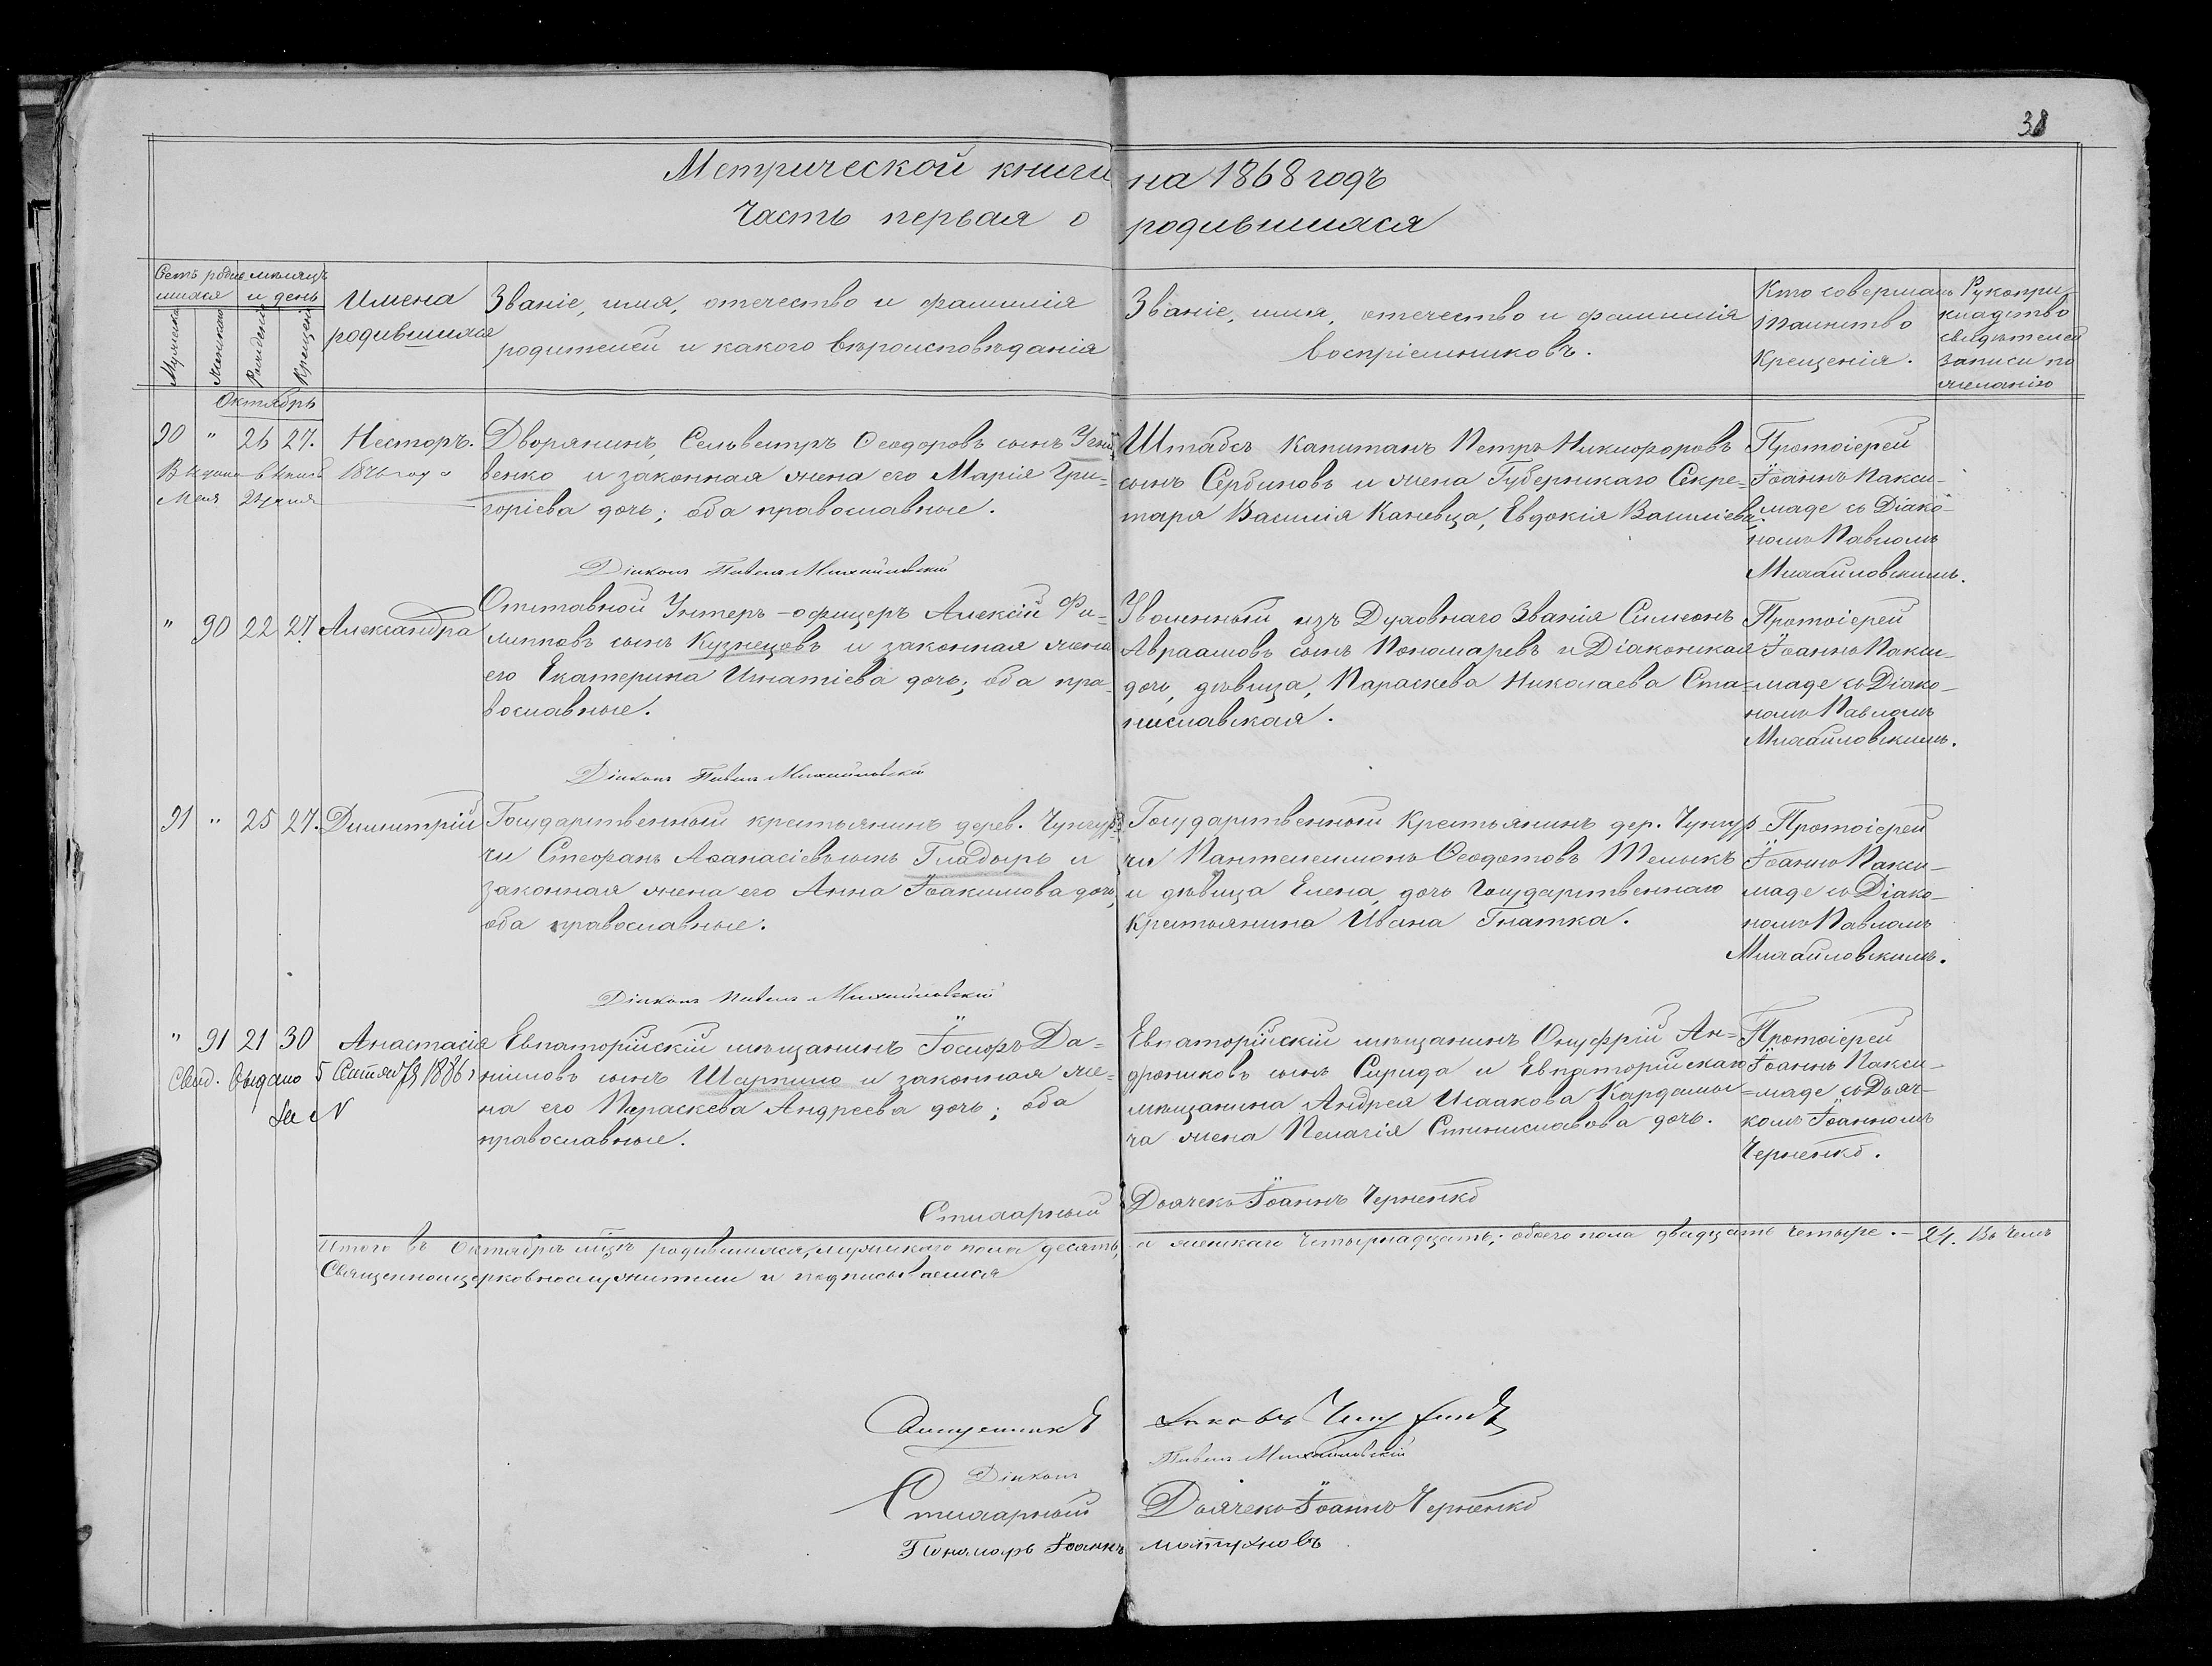 38
Метрической книги на 1868 годъ
Часть первая о родившихся
Счетъ родив мѣсяцъ
шихся и день
Мужеска
Женскаго
Рожденія
Крещенія
Имена
родившихся
Званіе, имя, отечество и фамилія
родителей и какого вѣроисповѣданія
Званіе, имя, отечество и фамилія
воспріемниковъ.
Кто совершалъ
таинство
Крещенія.
Рукопри-
кладство
свидѣтелей
записи по
желанію
Октябрь
90 " 26 27. Несторъ.
Выдана 1876 года
Дворянинъ, Сельвестръ Ѳеодоровъ сынъ
венко и законная жена его Марія Гри-
горіева дочь; оба православные.
Штабсъ Капитанъ Петръ Никифоровъ
сынъ Сербиновъ и жена Губернскаго Секре-
таря Василія Каневца, Евдокія Василіева.
Протоіерей
Іоаннъ Пакси-
маде съ Діако-
номъ Павломъ
Михайловскимъ.
Діаконъ Павелъ Михайловскій
" 90 22 27 Александра
Отставной Унтеръ-офицеръ Алексій Фи-
липповъ сынъ Кузнецовъ и законная жена
его Екатерина Игнатіева дочь; оба пра-
вославные.
Уволенный изъ Духовнаго Званія Симеонъ
Авраамовъ сынъ Пономаревъ и Діаконская
дочь, дѣвица, Параскева Николаева Ста-
ниславская.
Протоіерей
Іоаннъ Пакси-
маде съ Діако-
номъ Павломъ
Михайловскимъ.
Діаконъ Павелъ Михайловскій
91 " 25 27. Димитрій
Государственный крестьянинъ дерев. Чунгур
чи Стефанъ Аѳанасіевъ сынъ Гладырь и
законная жена его Анна Іоакимова дочь,
оба православные.
Государственный Крестьянинъ дер. Чунгур
чи Пантелеимонъ Ѳеодотовъ Телыкъ
и дѣвица Елена, дочь Государственнаго
Крестьянина Ивана Гнатка.
Протоіерей
Іоаннъ Пакси-
маде съ Діако-
номъ Павломъ
Михайловскимъ.
Діаконъ Павелъ Михайловскій
" 91 21 30 Анастасія
Свид. выдано 5 Сентября 1886 г
За N
Евпаторійскій мѣщанинъ Іосифъ Да-
ніиловъ сынъ Шарпило и законная же-
на его Параскева Андреева дочь; оба
православные.
Евпаторійскій мѣщанинъ Онуфрій Ан-
дрониковъ сынъ Сирида и Евпаторійскаго
мѣщанина Андрея Исаакова Кардаши
ча жена Пелагія Станиславова дочь.
Протоіерей
Іоаннъ Пакси-
маде съ Дьяч-
комъ Іоанномъ
Черненко.
Стихарный Дьячекъ Іоаннъ Черненко
Итого въ Октябрѣ м-цѣ родившихся, мужескаго пола десять, а женскаго Четырнадцать; обоего пола двадцать четыре. - 24. Въ чемъ
Священноцерковнослужители и подписываемся
Священникъ Іаковъ
Діаконъ Павелъ Михайловскій
Стихарный Дьячекъ Іоаннъ Черненко
Пономарь Іоаннъ